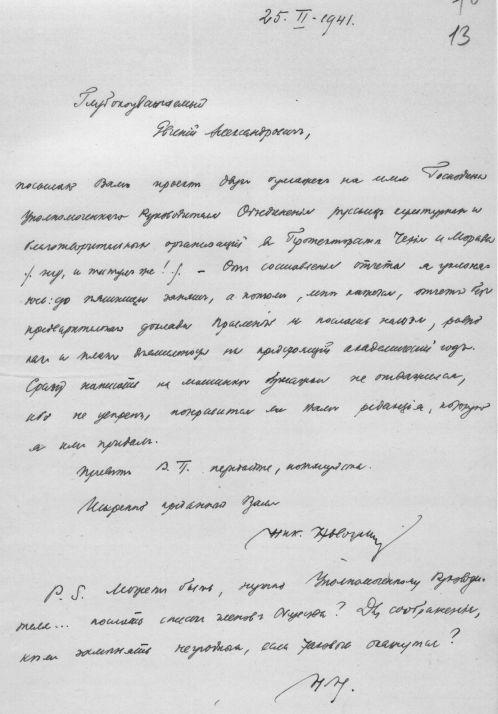 25. II - 1941.
13
Глубокоуважаемый
Евгений Александрович,
посылаю Вам проект двух бумажек на имя Господина
Уполномоченного Руководителя Объединения русских культурных и
благотворительных организаций в Протекторате Чехия и Морава
/: ну, и титул же! :/ - От составления отчета я уклоняю
до пятницы занят, а потом, мне кажется, отчет
предварительно Правления и
и план на предстоящий академический год.
Сразу написать на машинке бумажки не отважился,
ибо не уверен, понравится ли Вам редакция, которую
я им придал.
Привет В. П. передайте, пожалуйста.
Искренно преданный Вам
Ник.
P. S. Может быть, нужно Уполномоченному Руководи-
телю... послать список членов Общества? Для соображения,
кем заменять неугодных, если таковые окажутся?
Н.